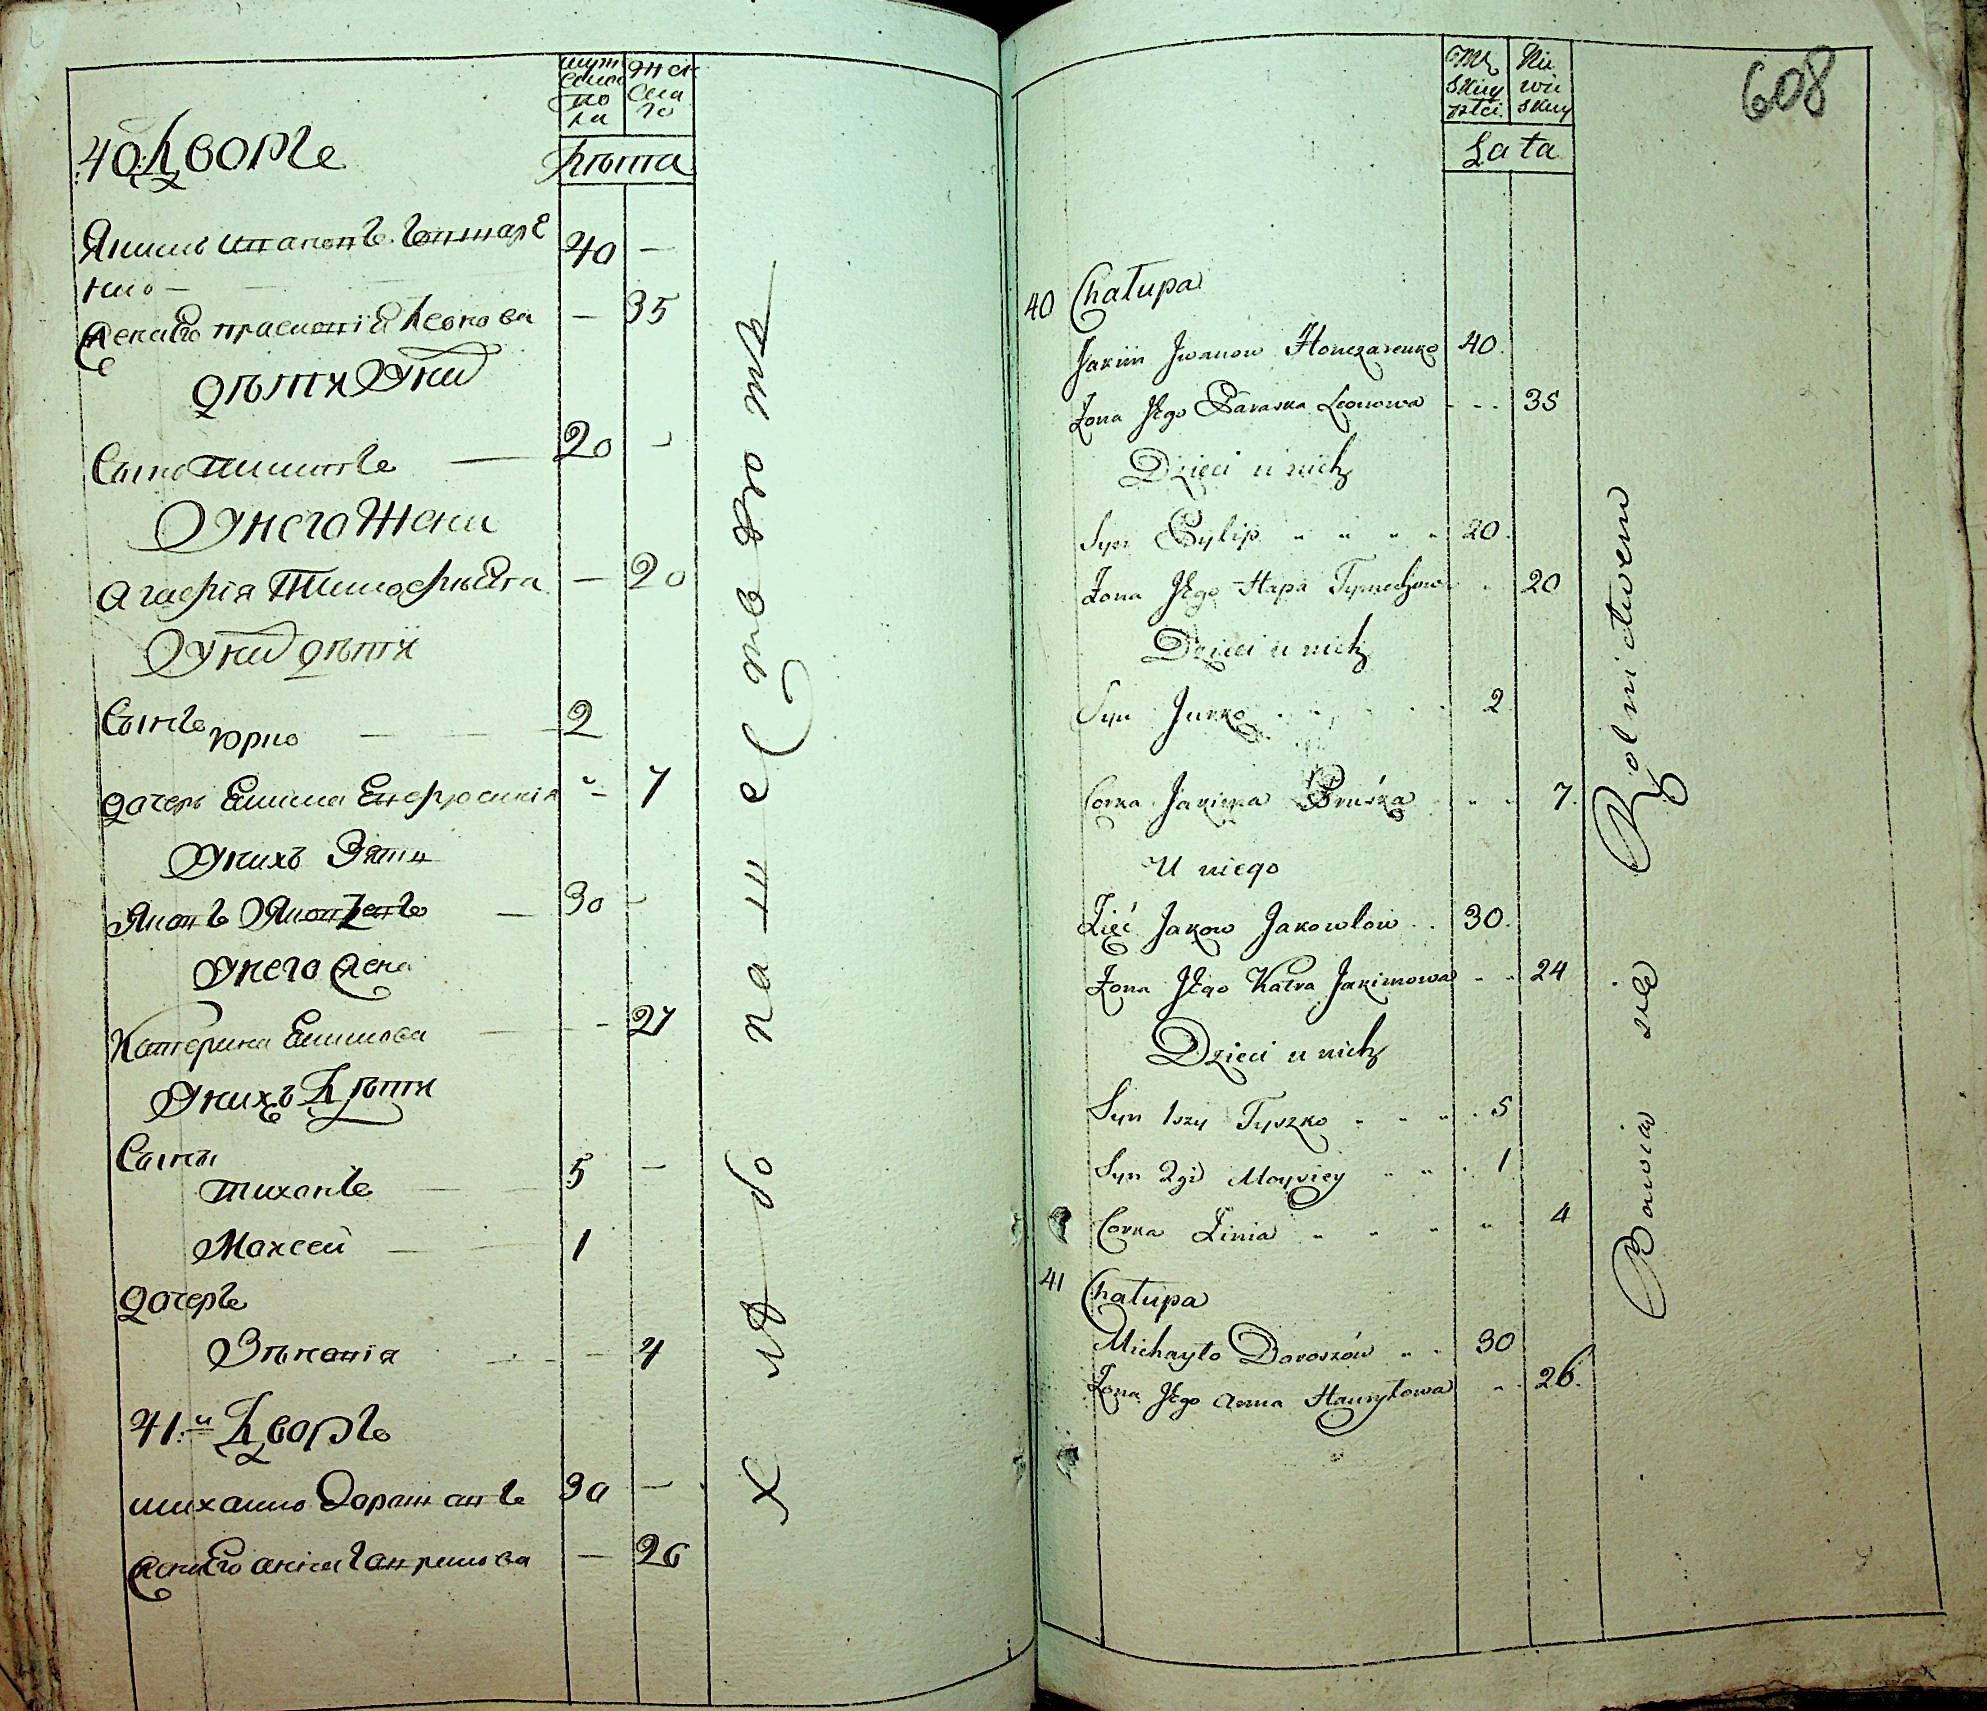 мужеска
пола
женска
го
40: Дворъ
Лѣта
Якимъ Ивановъ Гончаре
нко — 40 —
Жена Его Прасковія Леонова — 35
дѣти У них
Сынъ Пилипъ — 20 —
У него Жена
Агафія Тимофѣева — 20
У них дѣти
Сынъ Юрко — 2
дочерь Екима Ефросинія — 7
У нихъ Зять
Яковъ Яковлевъ — 30 —
У него Жена
Катерина Екимова — 27
У нихъ Дѣти
Сыны
Тихонъ — 5 —
Моисей — 1
дочерь
Зѣновія — 4
41:й Дворъ
Михайло Дорошовъ 30 —
Жена Его Анна Гаврилова — 26
Хлѣбопашествомъ
608
Mę
skiey
płci
Nie
wie
skiey
Lata
40 Chałupa
Jakim Iwanow Honczarenko 40.
Żona Jego Paraska Leonowa - - - 35
Dzieci u nich
Syn Pylip 20.
Żona Jego Hapa Tymochow 20
Dzieci u nich
Syn Jurko 2
Corka Jakima Pruśka 7.
U niego
Zięć Jakow Jakowlow 30.
Żona Jego Katra Jakimowa 24
Dzieci u nich
Syn 1szy Tyszko 5
Syn 2gi Moysiey 1
Corka Zinia 4
41 Chałupa
Michayło Doroszów 30
Żona Jego Anna Hawryłowa 26.
Bawia się Rolnictwem